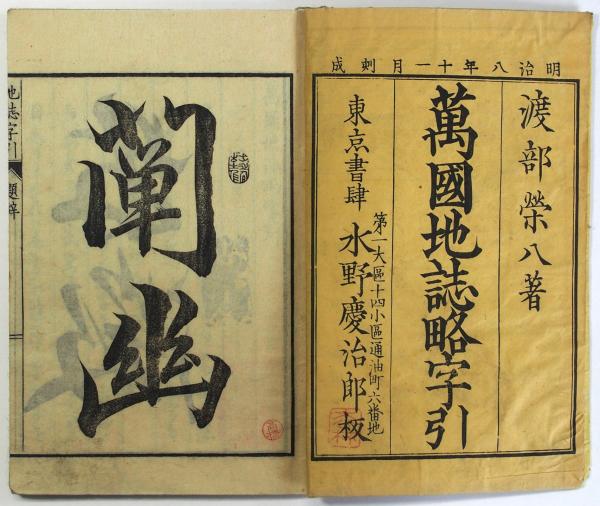 明治八年十一月刻成
渡部榮八著
萬國地誌略字引
東京書肆
第一大區十四小區通油町六番地
水野慶治郎板
闡幽
地誌字引
題辞